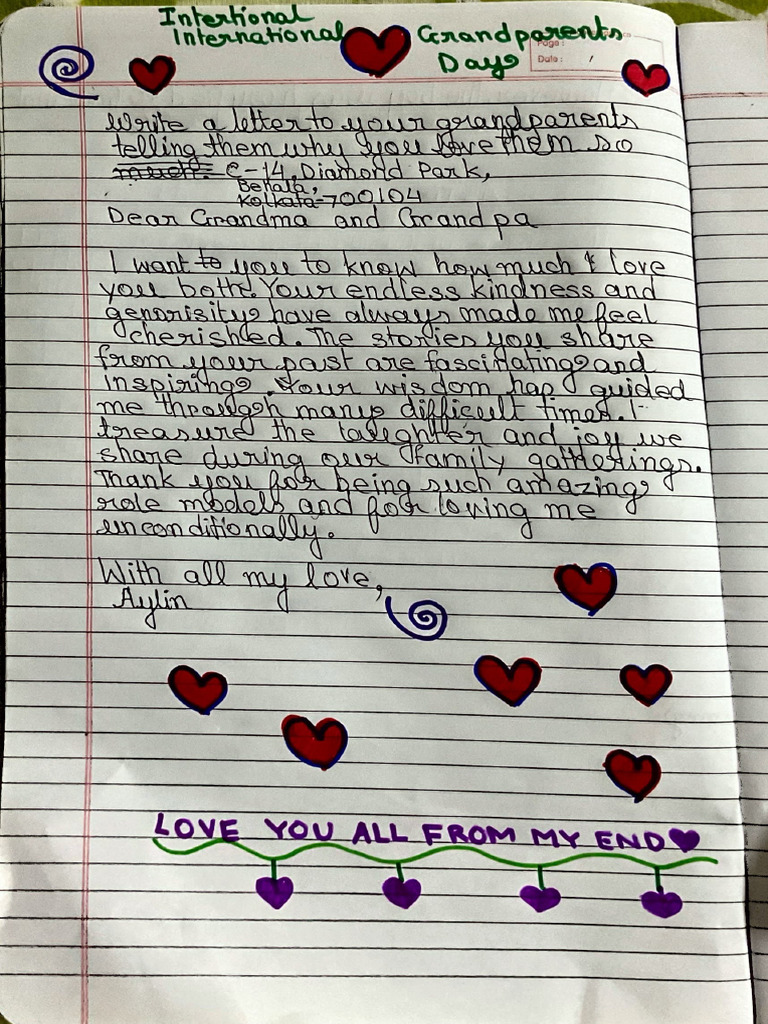 Intertional
International Grandparents
Day
Page:
Date: /
Write a letter to your grandparents
telling them why you love them so
much. C-14, Diamond Park,
Behala,
Kolkata-700104
Dear Grandma and Grandpa
I want to you to know how much I love
you both. Your endless kindness and
generisity have always made me feel
cherished. The stories you share
from your past are fascinating and
inspiring. Your wisdom has guided
me through many difficult times. I
treasure the laughter and joy we
share during our family gatherings.
Thank you for being such amazing
role models and for loving me
unconditionally.
With all my love,
Aylin
LOVE YOU ALL FROM MY END